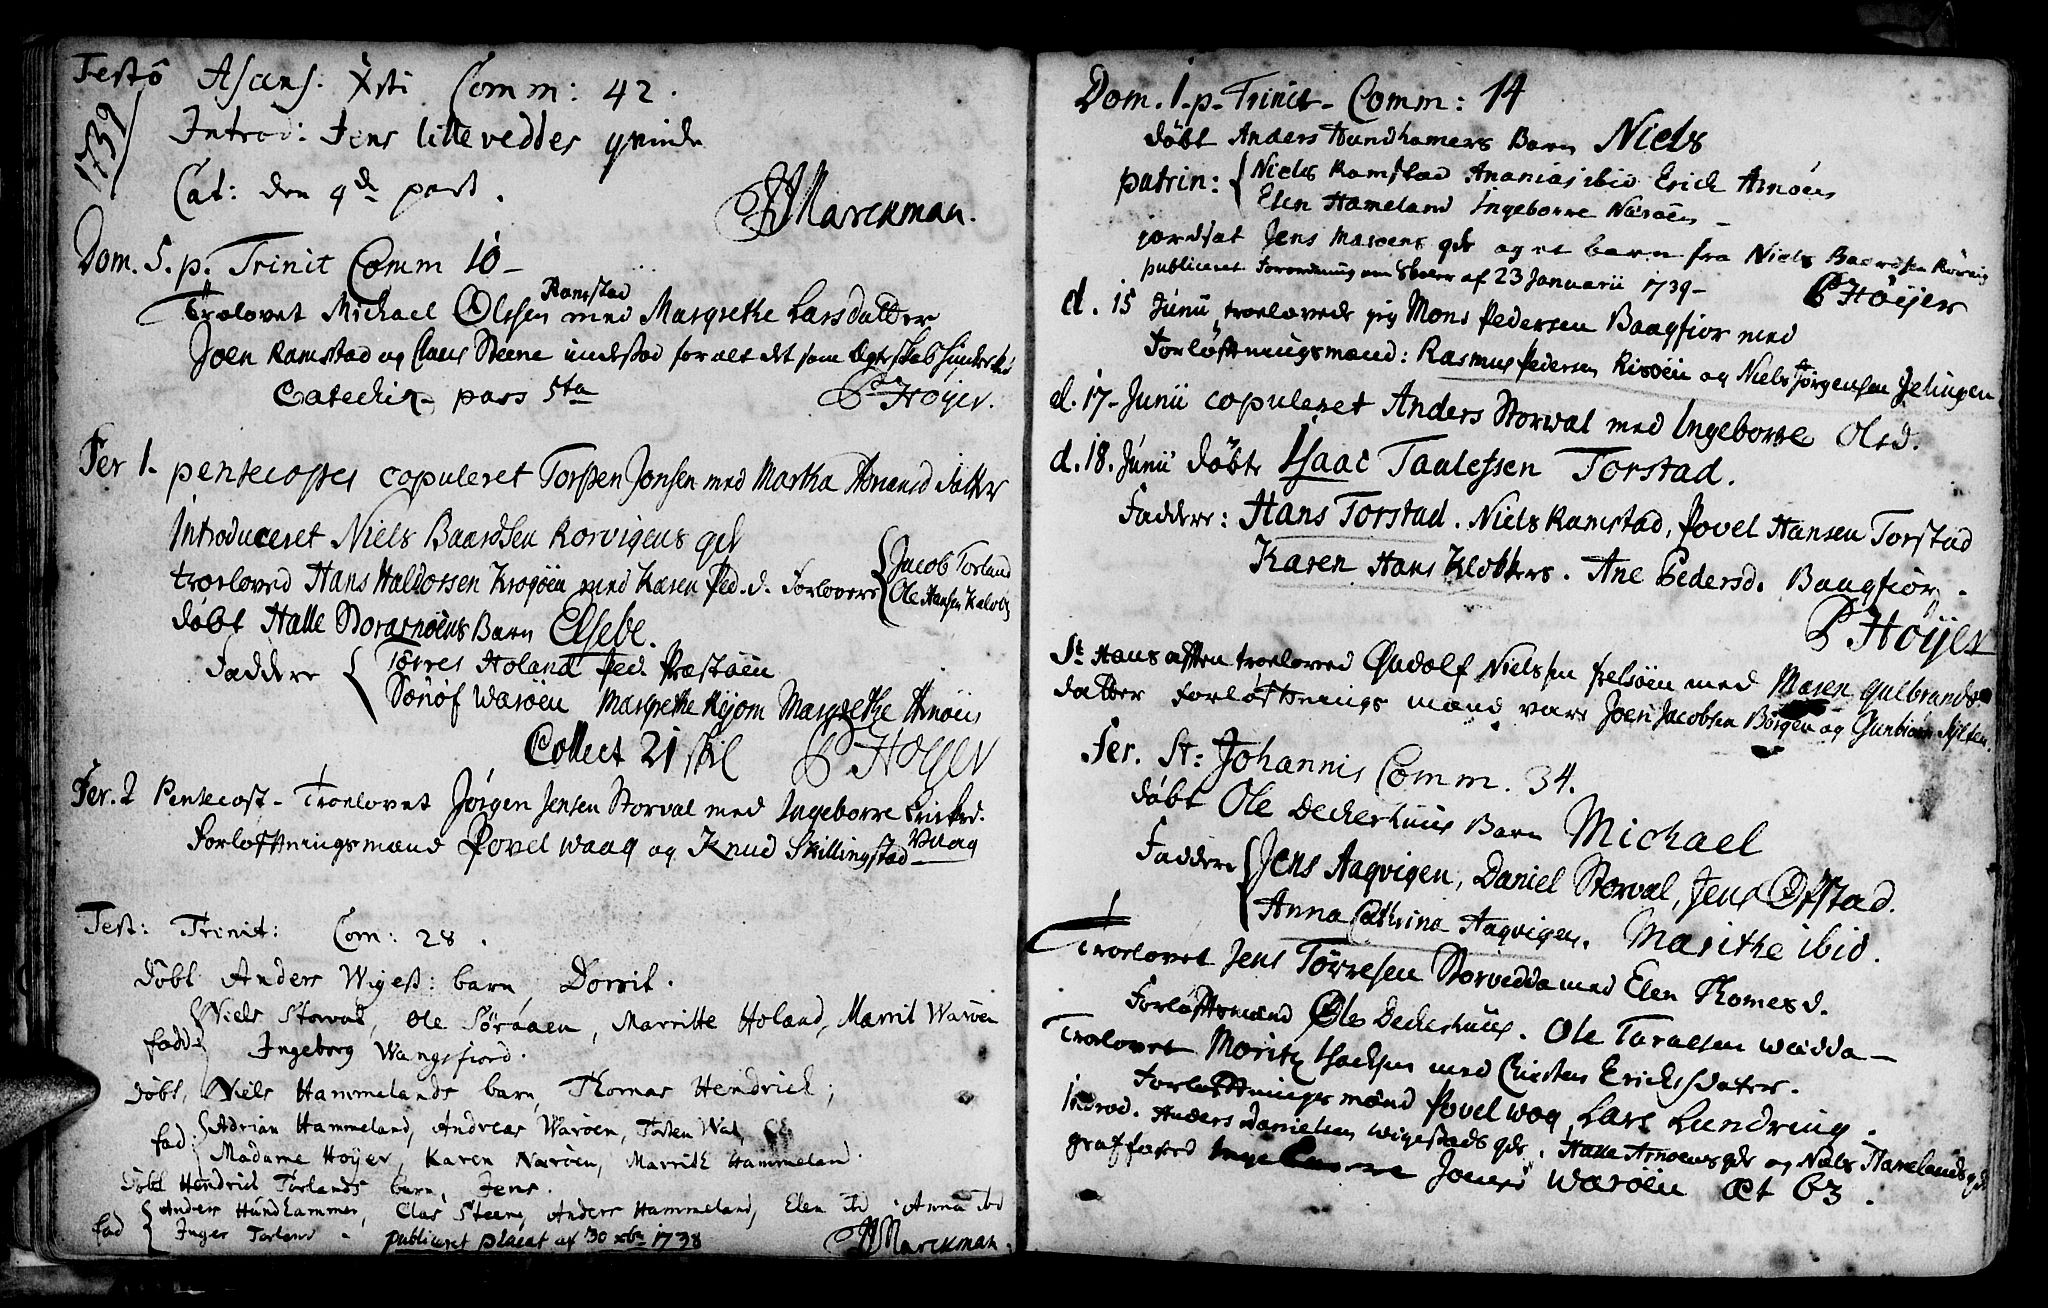 1739
Festo Ascens: Xsti Comm: 42.
Introd: Jens Lilleveddes qvinde
Cat: den 9de part.
HMarckman.
Dom. 5. p. Trinit Comm 10 -
Ramstad
Troelovet Michael Olssen med Margrethe Larsdatter
Joen Ramstad og Claus Steene indestod for alt det som
Catechis- pars 5ta
P Höyer.
Fer 1. pentecostes copuleret Torsten Jonsen med Martha
Introduceret Niels Baardsen Rorvigens qv
troeloved Hans Haldorssen Krogöen med Karen Ped. d. Forlovere { Jacob Torland
Ole Hansen
döbt Halle Storarnöens Barn Elsebe.
Faddere { Törres Holand Ped: Præstöen
Sönöf Waröen Margrethe Margrethe Arnöens
Collect 21 skil P Höyer
Fer. 2 Pentecost - Troelovet Jörgen Jensen Storval med Ingeborre Ericksd.
Forloftningsmænd Povel Waag og Knud Skillingstad
Fest: Trinit: Com: 28.
Döbt Anders Wigest: barn, Dorrit.
fadd: { Niels Storval, Ole Söraaen, Marritte Holand, Marrit Waröen
Ingeborg Wangsfiord.
Döbt, Niels Hammelands barn, Thomas Hendrich;
fad: { Adrian Hammeland, Andreas Waröen, Torsten Wal,
Madame Höyer, Karen Naröen, Marrith Hammeland.
Döbt Hendrich Torlands barn, Jens.
fad { Anders Hundhammer, Clas Steene, Anders Hammeland, Elen Ibd, Anna Ibd
Inger Torland - publiceret placat af 30 xbr 1738
HMarckman.
Dom. 1. p. Trinit - Comm: 14
döbt Anders Hundhamers Barn Niels
patrin: { Niels Ramstad Ananias ibid Erick Arnöens
Elen Hameland Ingeborre Naröen -
jordsat Jens Maroens qde og et barn fra Niels Baardsen Rörvig
publiceret Forordning om Skoler af 23 Januarii 1739 -
P Höijer
d. 15 Junii troelovede jeg Mons Pedersen Baagfior med
Forlöftningsmænd: Rasmus Pedersen Risöen og Niels Jörgensen
d. 17 - Junii copuleret Anders Storwal med Ingeborre Olsd.
d. 18. Junii döbte Isaac Taulessen Torstad.
Faddere: Hans Torstad. Niels Ramstad, Povel Hansen Torstad
Karen Hans Klokkers. Ane Pedersd. Baagfior.
P Höijer
St Hans aften troeloved Gudolf Nielssen med Maren Gulbrands
datter Forlöftnings mænd vare Joen Jacobsen Börgen og
Fer. St: Johannis Comm. 34.
döbt Ole Deckerhuus Barn Michael
Faddere { Jens Aagvigen, Daniel Storval, Jens Ofstad.
Anna Cathrina Aagvigen. Marithe ibid.
Troelovet Jens Törresen Storvedda med Elen Thomesd.
Forlöftsmænd Ole Deckerhuus. Ole Taralsen Wædda -
Troelovet Moritz Isachsen med Chirsten Ericksdatter.
Forlöftningsmænd Povel Wog, Lars Lundring.
Introd. Anders Danielsen Wigestads qde. Halle Arnöens qde og Niels Hamelands qde
graffæsted Joens Waröen æt 63.